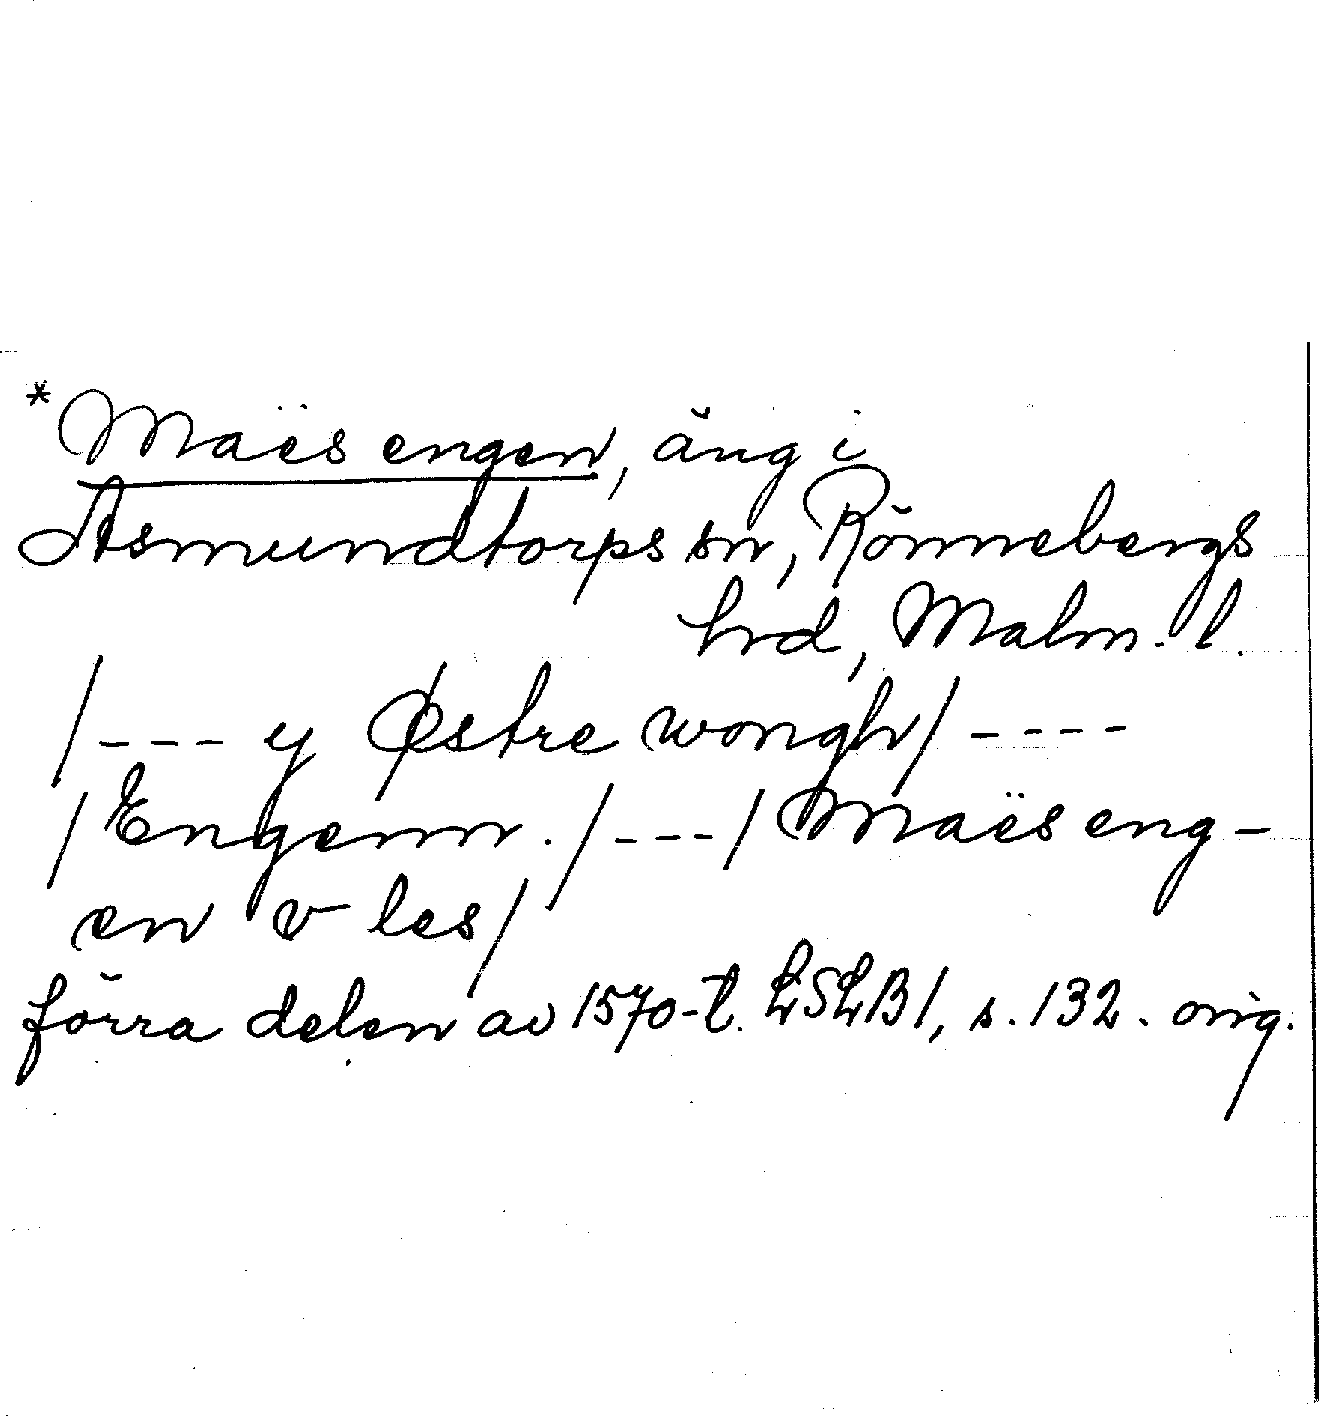 *Maës engen, äng i
Asmundtorps sn, Rönnebergs
hrd, Malm. l.
/--- y Østre wongh/ ----
/Engenn./---/Maës eng-
en v les/
förra delen av 1570-t. LSLB 1, s. 132. orig.